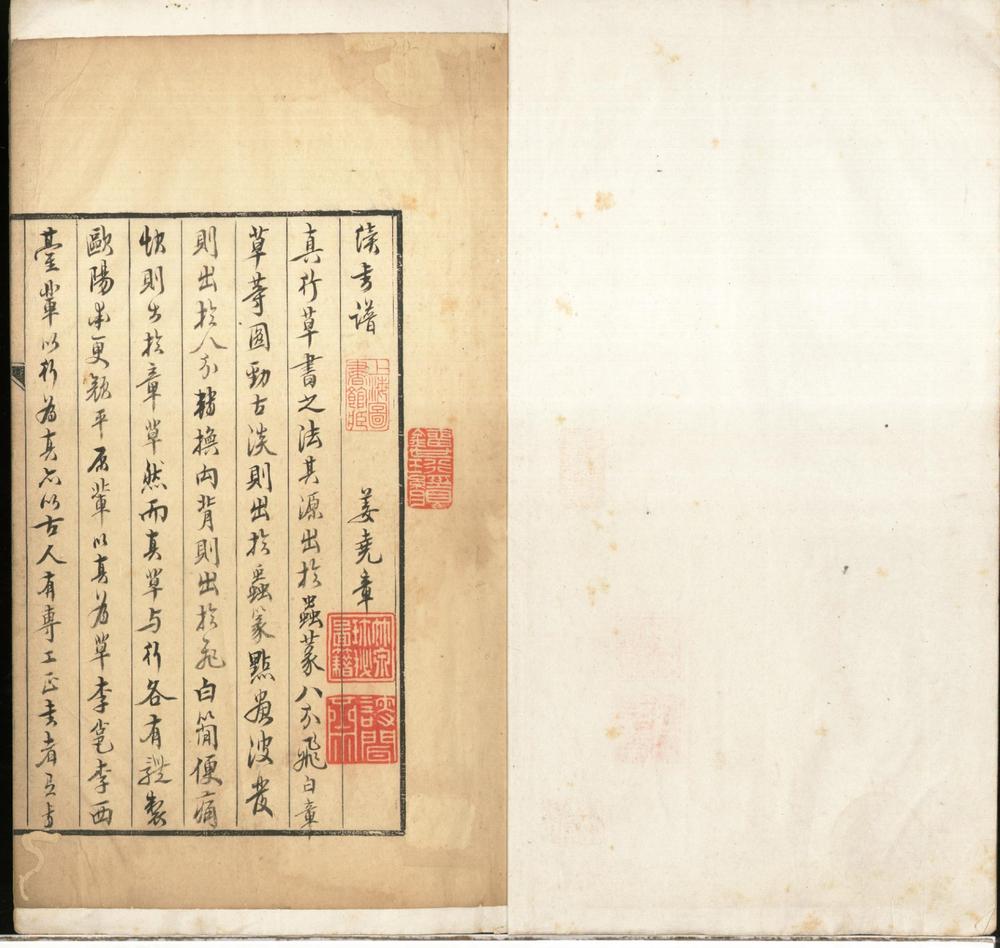 續书谱 姜堯章
真行草書之法其源出於蟲篆八分飛白章
草等圓勁古淡則出於蟲篆點畫波發
則出於八分轉換向背則出於飛白簡便痛
快則出於章草然而真草与行各有體製
歐陽率更顔平原輩以真為草李邕李西
臺輩以行為真亦以古人有專工正书者有专
上海圖書館藏